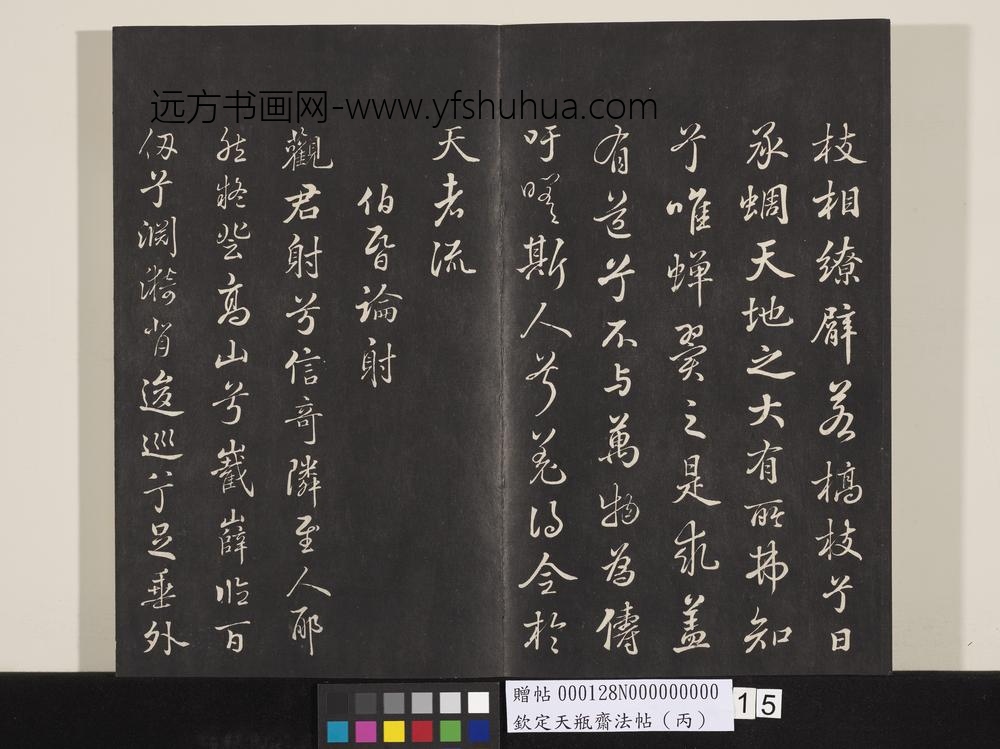 远方书画网-www.yfshuhua.com
枝相繚臂若槁枝兮日
承蜩天地之大有所弗知
兮唯蟬翼之是求蓋
有道兮不与萬物為儔
吁嗟斯人兮羌得全於
天者流
伯昏論射
觀君射兮信奇隣至人耶
然將登高山兮嶻嶭臨百
仞兮淵漪背逡巡兮足垂外
贈帖 000128N000000000
欽定天瓶齋法帖（丙）
15